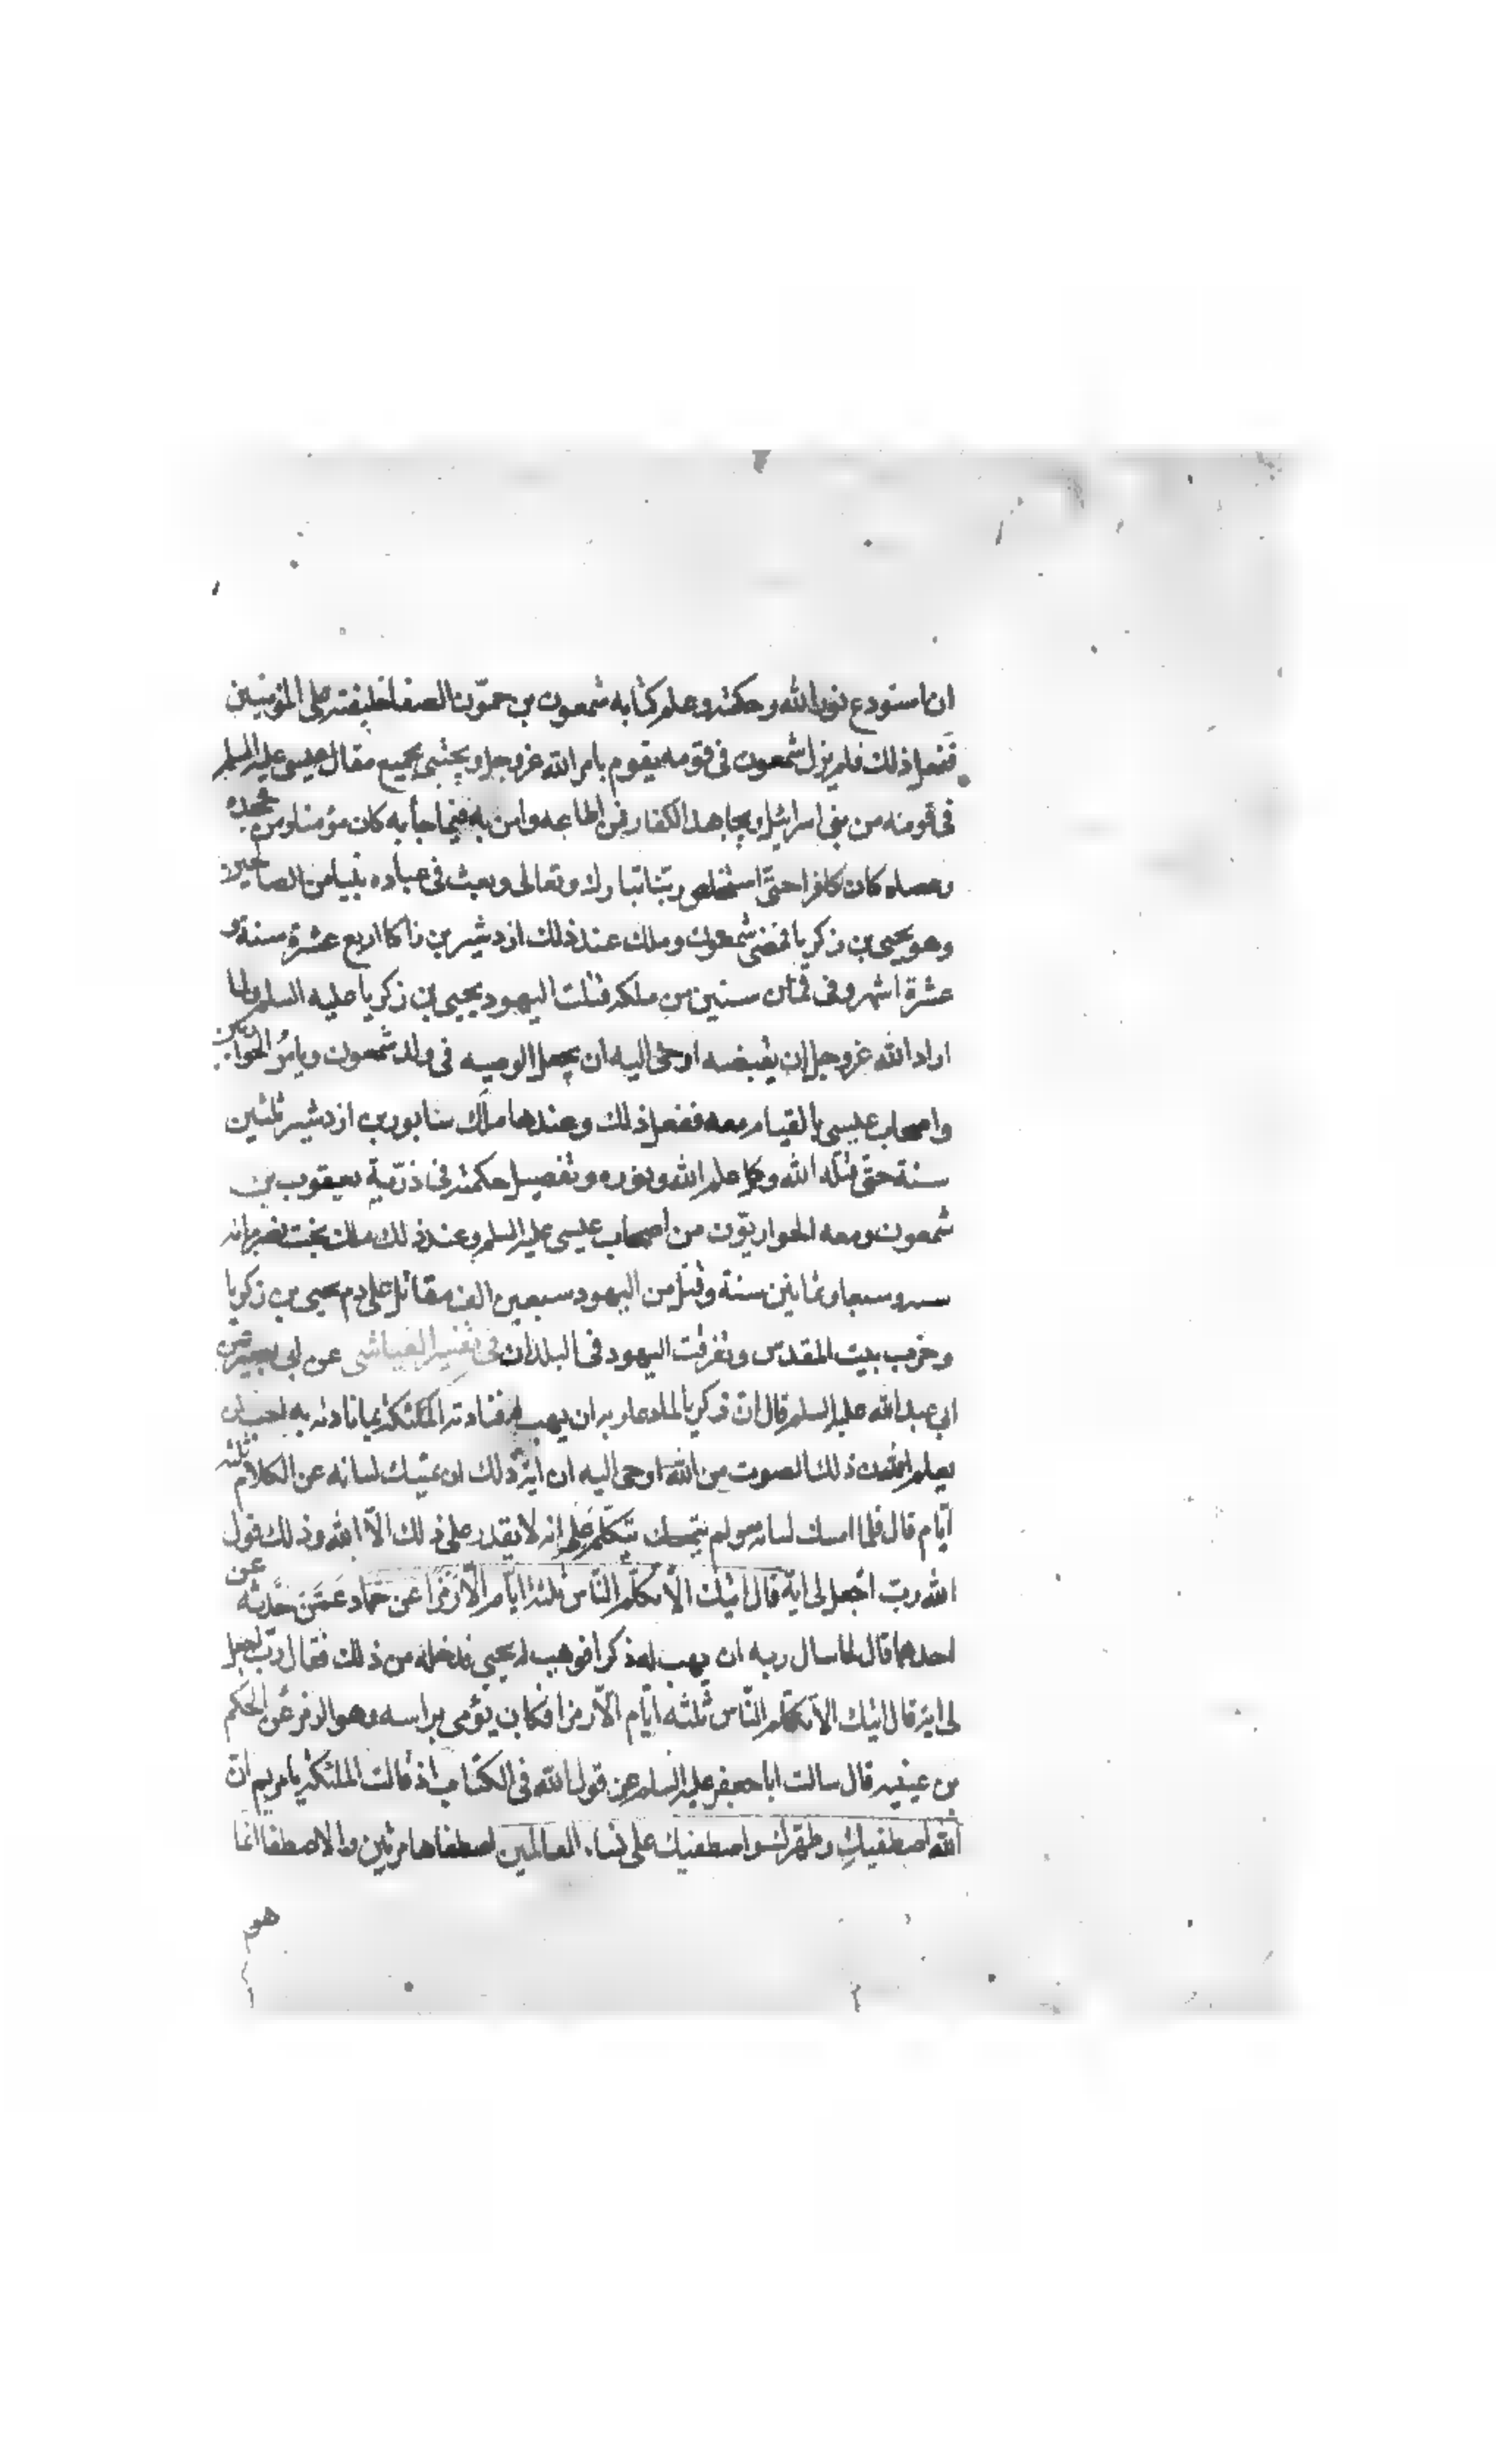 ان استودع نور الله وحكمته وعلم كتابه شمعون بن حمّون الصفا خليفته على المؤمنين
ففعل ذلك فلم يزل شمعون فى قومه يقوم بامر الله عز وجل و يحتبى بجميع مقال عيسى عليه السلم
فى قومه من بنى اسرائيل و يجاهد الكفار فمن اطاعه وامن به فيما جأ به كان مؤمنا ومن جحده
وعصاه كان كافرا حتّى استخلص ربّنا تبارك وتعالى وبعث فى عباده نبيا من الصالحين
وهو يحيى بن زكريا فمضى شمعون وملك عند ذلك ازدشير بن زاكا اربع عشرة سنة و
عشرة اشهر وفى ثمان سنين من ملكه قتلت اليهود يحيى بن زكريا عليه السلم ولما
اراد الله عز وجل ان يقبضه اوحى اليه ان يجعل الوصيه فى ولد شمعون ويامر الحواريين
واصحاب عيسى بالقيام معه ففعل ذلك وعندها ملك سابور بن ازدشير ثلثين
سنة حتى قتله الله و علم الله ونوره وتفصيل حكمته فى ذرّية يعقوب بن
شمعون ومعه الحواريّون من اصحاب عيسى عليه السلم وعند ذلك ملك بخت نصر مائه
سنه وسبعا وثمانين سنة وقتل من اليهود سبعين الف مقاتل على دم يحيى بن زكريا
وخرب بيت المقدس وتفرقت اليهود فى البلدان فى تفسير العياشى عن ابى بصير عن
ابى عبد الله عليه السلم قال ان زكريا لما دعا ربه ان يهب له فنادته الملئكة بما نادته به احب ان
يعلم ان ذلك الصوت من الله اوحى اليه ان اية ذلك ان يمسك لسانه عن الكلام ثلثه
ايّام قال فلما امسك لسانه ولم يتكلّم علم انه لا يقدر على ذلك الّا الله وذلك قول
الله ربّ اجعل لى اية قال ايتك الّا تكلّم النّاس ثلثة ايّام الّا رمزا عن حمّاد عمّن حدّثه عن
احدهما قال لما سال ربه ان يهب له ذكرا فوهب له يحيى فدخله من ذلك فقال ربّ اجعل
لى اية قال ايتك الّا تكلّم النّاس ثلثه ايّام الّا رمزا فكان يؤمى براسه وهو الرمز عن الحكم
بن عيينه قال سالت ابا جعفر عليه السلم عن قول الله فى الكتاب اذ قالت الملئكة يا مريم انّ
الله اصطفيك وطهّرك واصطفيك على نساء العالمين اصطفاها مرتين والاصطفا انّما
هو